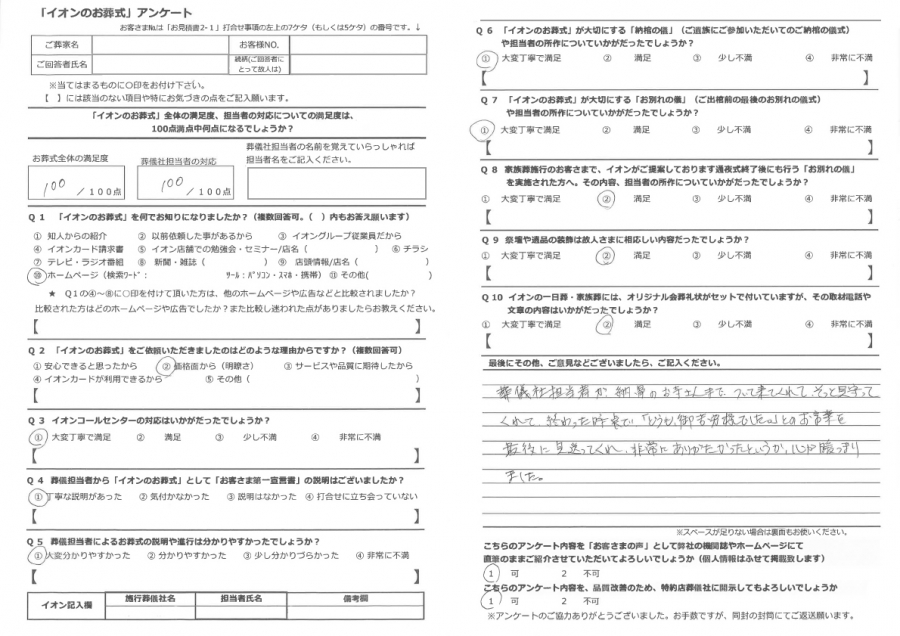 「イオンのお葬式」アンケート
お客さま№は「お見積書2-1」打合せ事項の左上の7ケタ（もしくは5ケタ）の番号です。↓
ご葬家名 お客様NO.
ご回答者氏名 続柄(ご回答者にとって故人は)
※当てはまるものに○印をお付け下さい。
【 】には該当のない項目や特にお気づきの点をご記入願います。
「イオンのお葬式」全体の満足度、担当者の対応についての満足度は、
100点満点中何点になるでしょうか？
お葬式全体の満足度 葬儀社担当者の対応
葬儀社担当者の名前を覚えていらっしゃれば
担当者名をご記入ください。
100 /100点 100 /100点
Q 1 「イオンのお葬式」を何でお知りになりましたか？（複数回答可。（ ）内もお答え願います）
① 知人からの紹介 ② 以前依頼した事があるから ③ イオングループ従業員だから
④ イオンカード請求書 ⑤ イオン店舗での勉強会・セミナー/店名（ ） ⑥ チラシ
⑦ テレビ・ラジオ番組 ⑧ 新聞・雑誌（ ） ⑨ 店頭情報/店名（ ）
⑩ ホームページ（検索ﾜｰﾄﾞ： ﾂｰﾙ：ﾊﾟｿｺﾝ・ｽﾏﾎ・携帯） ⑪ その他( )
★ Q1の④～⑧に○印を付けて頂いた方は、他のホームページや広告などと比較されましたか？
比較された方はどのホームページや広告でしたか？また比較し迷われた点がありましたらお教えください。
【 】
Q 2 「イオンのお葬式」をご依頼いただきましたのはどのような理由からですか？（複数回答可）
① 安心できると思ったから ② 価格面から（明瞭さ） ③ サービスや品質に期待したから
④ イオンカードが利用できるから ⑤ その他（ ）
【 】
Q 3 イオンコールセンターの対応はいかがだったでしょうか？
① 大変丁寧で満足 ② 満足 ③ 少し不満 ④ 非常に不満
【 】
Q 4 葬儀担当者から「イオンのお葬式」として「お客さま第一宣言書」の説明はございましたか？
① 丁寧な説明があった ② 気付かなかった ③ 説明はなかった ④ 打合せに立ち会っていない
【 】
Q 5 葬儀担当者によるお葬式の説明や進行は分かりやすかったでしょうか？
① 大変分かりやすかった ② 分かりやすかった ③ 少し分かりづらかった ④ 非常に不満
【 】
イオン記入欄 施行葬儀社名 担当者氏名 備考欄
Q 6 「イオンのお葬式」が大切にする「納棺の儀」（ご遺族にご参加いただいてのご納棺の儀式）
や担当者の所作についていかがだったでしょうか？
① 大変丁寧で満足 ② 満足 ③ 少し不満 ④ 非常に不満
【 】
Q 7 「イオンのお葬式」が大切にする「お別れの儀」（ご出棺前の最後のお別れの儀式）
や担当者の所作についていかがだったでしょうか？
① 大変丁寧で満足 ② 満足 ③ 少し不満 ④ 非常に不満
【 】
Q 8 家族葬施行のお客さまで、イオンがご提案しております通夜式終了後にも行う「お別れの儀」
を実施された方へ。その内容、担当者の所作についていかがだったでしょうか？
① 大変丁寧で満足 ② 満足 ③ 少し不満 ④ 非常に不満
【 】
Q 9 祭壇や遺品の装飾は故人さまに相応しい内容だったでしょうか？
① 大変丁寧で満足 ② 満足 ③ 少し不満 ④ 非常に不満
【 】
Q 10 イオンの一日葬・家族葬には、オリジナル会葬礼状がセットで付いていますが、その取材電話や
文章の内容はいかがだったでしょうか？
① 大変丁寧で満足 ② 満足 ③ 少し不満 ④ 非常に不満
【 】
最後にその他、ご意見などございましたら、ご記入ください。
葬儀社担当者が、納骨のお手伝いまで、ついて来てくれて、そっと見守って
くれて、終わった時点で「どうも、御苦労様でした。」とのお言葉を
最後に 見送ってくれ、非常に ありがたかったというか、心が暖っまり
ました。
※スペースが足りない場合は裏面もお使いください。
こちらのアンケート内容を「お客さまの声」として弊社の機関誌やホームページにて
直筆のままご紹介させていただいてよろしいでしょうか（個人情報はふせて掲載致します）
1 可 2 不可
こちらのアンケート内容を、品質改善のため、特約店葬儀社に開示してもよろしいでしょうか
1 可 2 不可
※アンケートのご協力ありがとうございました。お手数ですが、同封の封筒にてご返送願います。